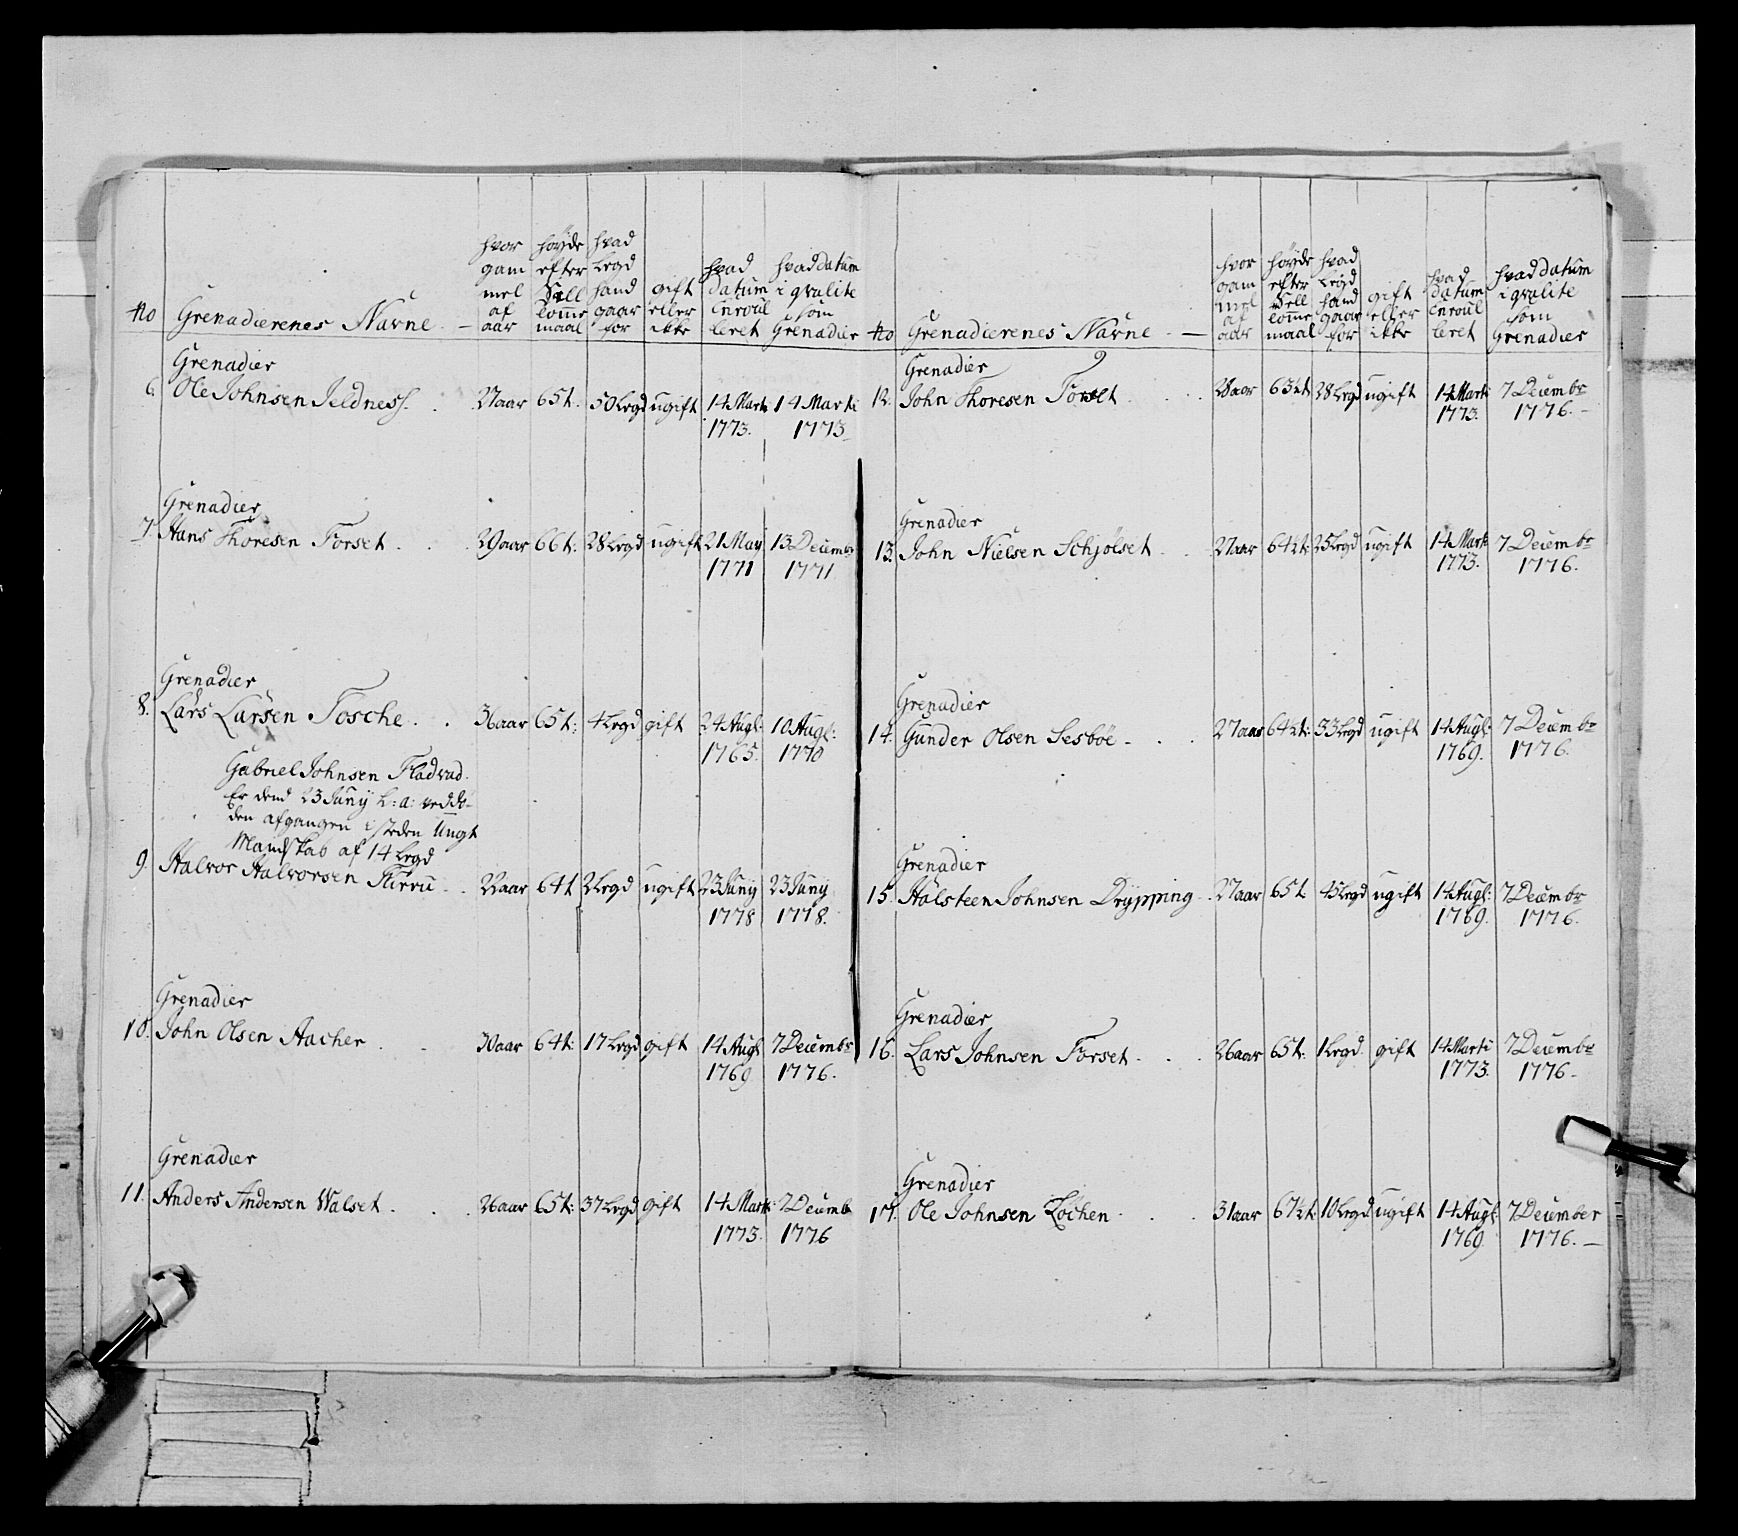 No Grenadierenes Navne hvor gam mel af aar høyde efter Sell comme maal hvad Legd hand gaar for gift eller ikke hvad datum Enroul leret hvad datum i qvalite som Grenadier
Grenadier
6. Ole Johnsen Jeldness. 27aar 65t. 50Legd ugift 14 Marti 14 Marti
1773. 1773
Grenadier
7. Hans Thoresen Forset 29aar 66t: 28Legd ugift 21 Maij 13 Decembr
1771 1771
Grenadier
8. Lars Larsen Fosche 36aar 65t: 4Legd gift 24 Augt: 10 Augt:
1765. 1770
Gabriel Johnsen Fladvad.
Er dend 23 Junÿ h: a: ved dö-
den afgangen i steden Ungt
Mandskab af 14 Legd
9. Halvor Halvorsen Furru 22aar 64t 2Legd ugift 23 Junÿ 23 Junÿ
1778 1778.
Grenadier
10. John Olsen Aacher 30aar 64t: 17Legd gift 14 Augt 7 Decembr
1769 1776.
Grenadier
11. Anders Andersen Walset 26aar 65t: 37Legd gift 14 Marti 7 Decemb
1773. 1776
No Grenadierenes Navne hvor gam mel af aar høyde efter Sell comme maal hvad Legd hand gaar for gift eller ikke hvad datum Enroul leret hvad datum i qvalite som Grenadier
Grenadier
12. John Thoresen Forset 28aar 63½t 28Legd ugift 14 Marti 7 Decembr
1773. 1776.
Grenadier
13. John Nielsen Schjölset 27aar 64½t: 25Legd ugift 14 Marti 7 Decembr
1773. 1776.
Grenadier
14. Gunder Olsen Sesböe 27aar 64½t: 33Legd ugift 14 Augt: 7 Decembr
1769. 1776.
Grenadier
15. Halsteen Johnsen Drÿpping 27aar 65t 45Legd ugift 14 Augt: 7 Decembr
1769. 1776.
Grenadier
16. Lars Johnsen Forset 26aar 65t: 1Legd gift 14 Marti 7 Decembr
1773. 1776
Grenadier
17. Ole Johnsen Lochen 31aar 67½t: 10Legd ugift 14 Augt: 7 December
1769 1776.